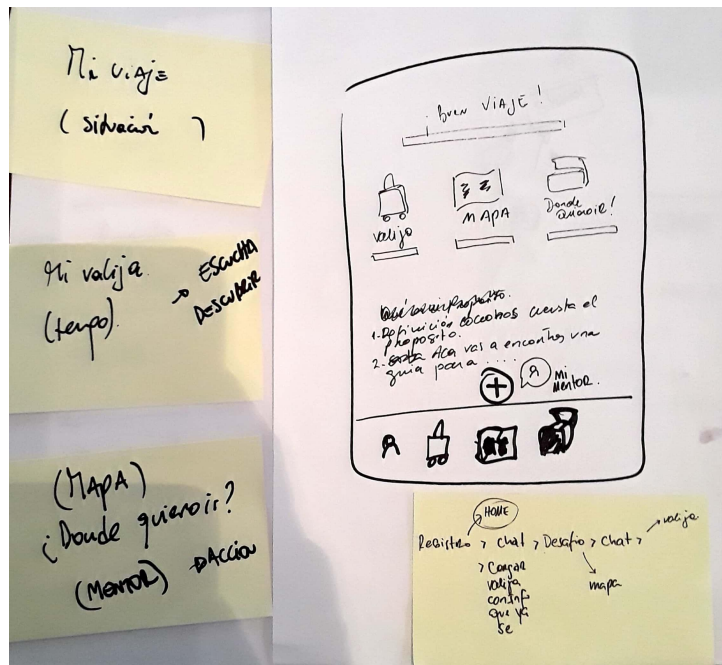 Mi viaje
(situación)
Mi valija
(tengo)
→ ESCUCHA
DESCUBRIR
(MAPA)
¿Donde quiero ir?
(MENTOR) → ACCION
¡Buen VIAJE!
valija
MAPA
Donde
1. Definición cuesta el
proposito.
2. Aca vas a encontrar una
guia para ....
Mi
MENTOR.
HOME
Registro > chat > Desafio > Chat >
→ valija
> Cargar
valija
con info
que ya
se
mapa